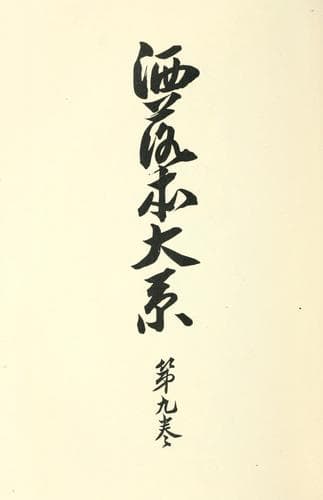 洒落本大系
第九巻